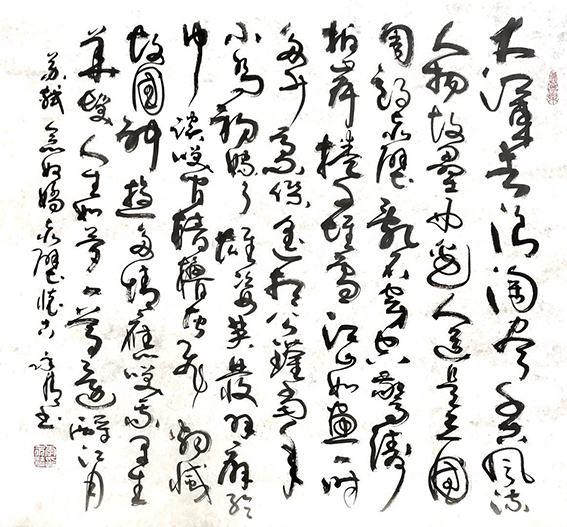 大江東去浪淘盡千古風流
人物故壘西邊人道是三國
周郎赤壁亂石穿空驚濤
拍岸捲千堆雪江山如畫一時
多少豪傑遙想公瑾當年
小喬初嫁了雄姿英發羽扇綸
巾談笑間檣櫓灰飛煙滅
故國神遊多情應笑我早生
華髮人生如夢一尊還酹江月
蘇軾念奴嬌赤壁懷古 書